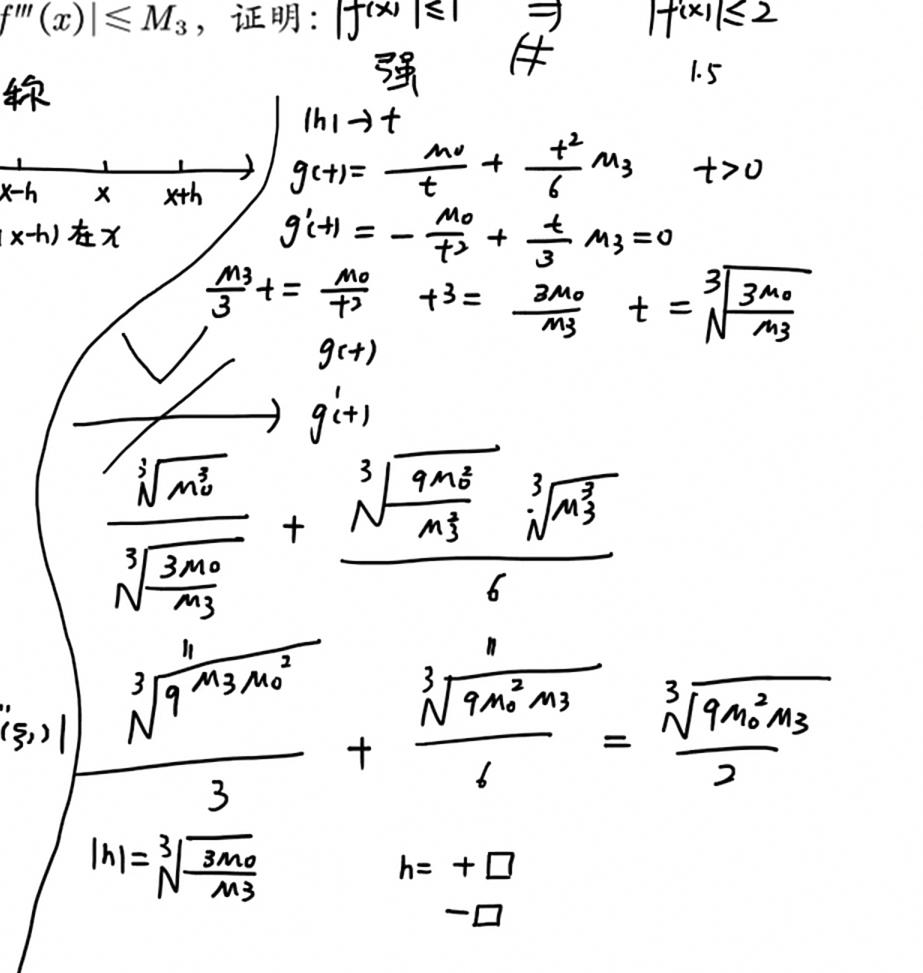 f'''(x)| ≤ M₃，证明：|f(x)| ≤ 1 ⇒ |f'(x)| ≤ 2
强 1.5
称
|h| → t
g(t) = M₀/t + t²/6 M₃ t>0
x-h x x+h
g'(t) = -M₀/t² + t/3 M₃ = 0
x-h) 在 x
M₃/3 t = M₀/t² t³ = 3M₀/M₃ t = ³√(3M₀/M₃)
g(t)
g'(t)
³√(M₀³) / ³√(3M₀/M₃) + ³√(9M₀²/M₃²) ³√(M₃³) / 6
॥ ॥
³√(9M₃M₀²) / 3 + ³√(9M₀²M₃) / 6 = ³√(9M₀²M₃) / 2
'''(ξ₁)|
|h| = ³√(3M₀/M₃) h = +□
-□